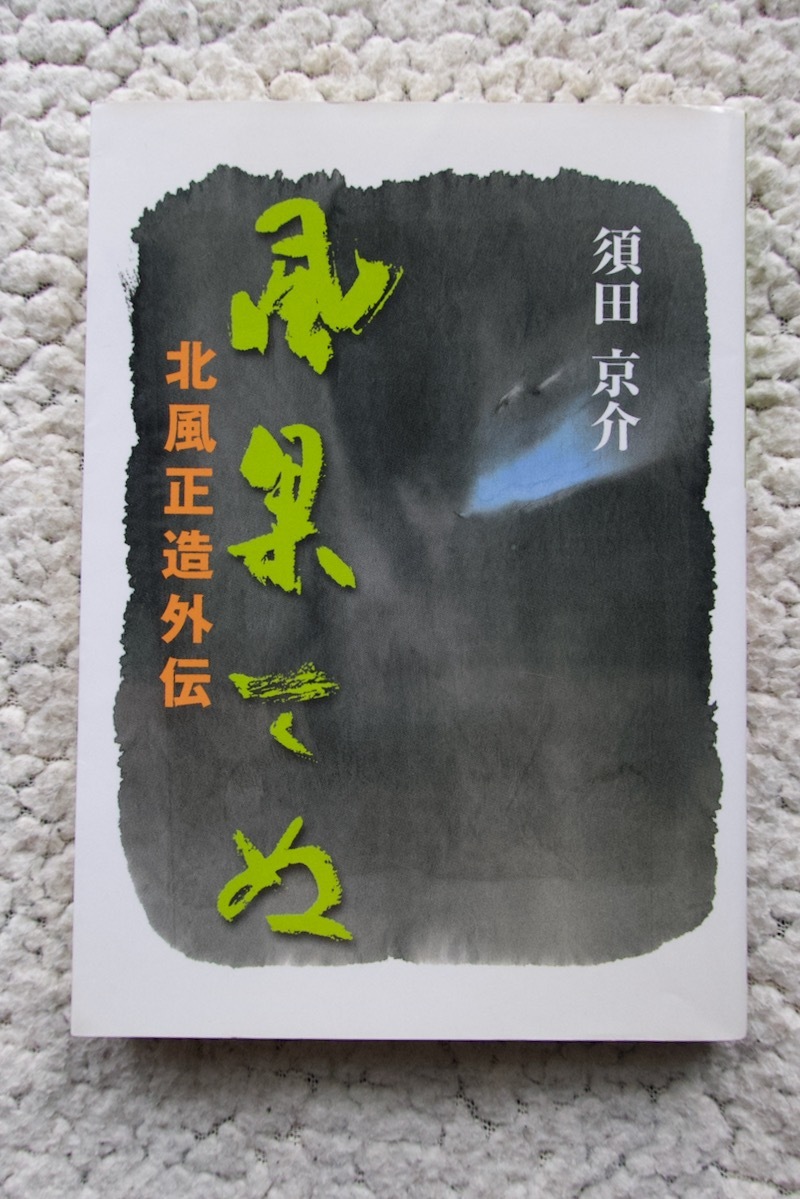 須田 京介
風果てぬ
北風正造外伝